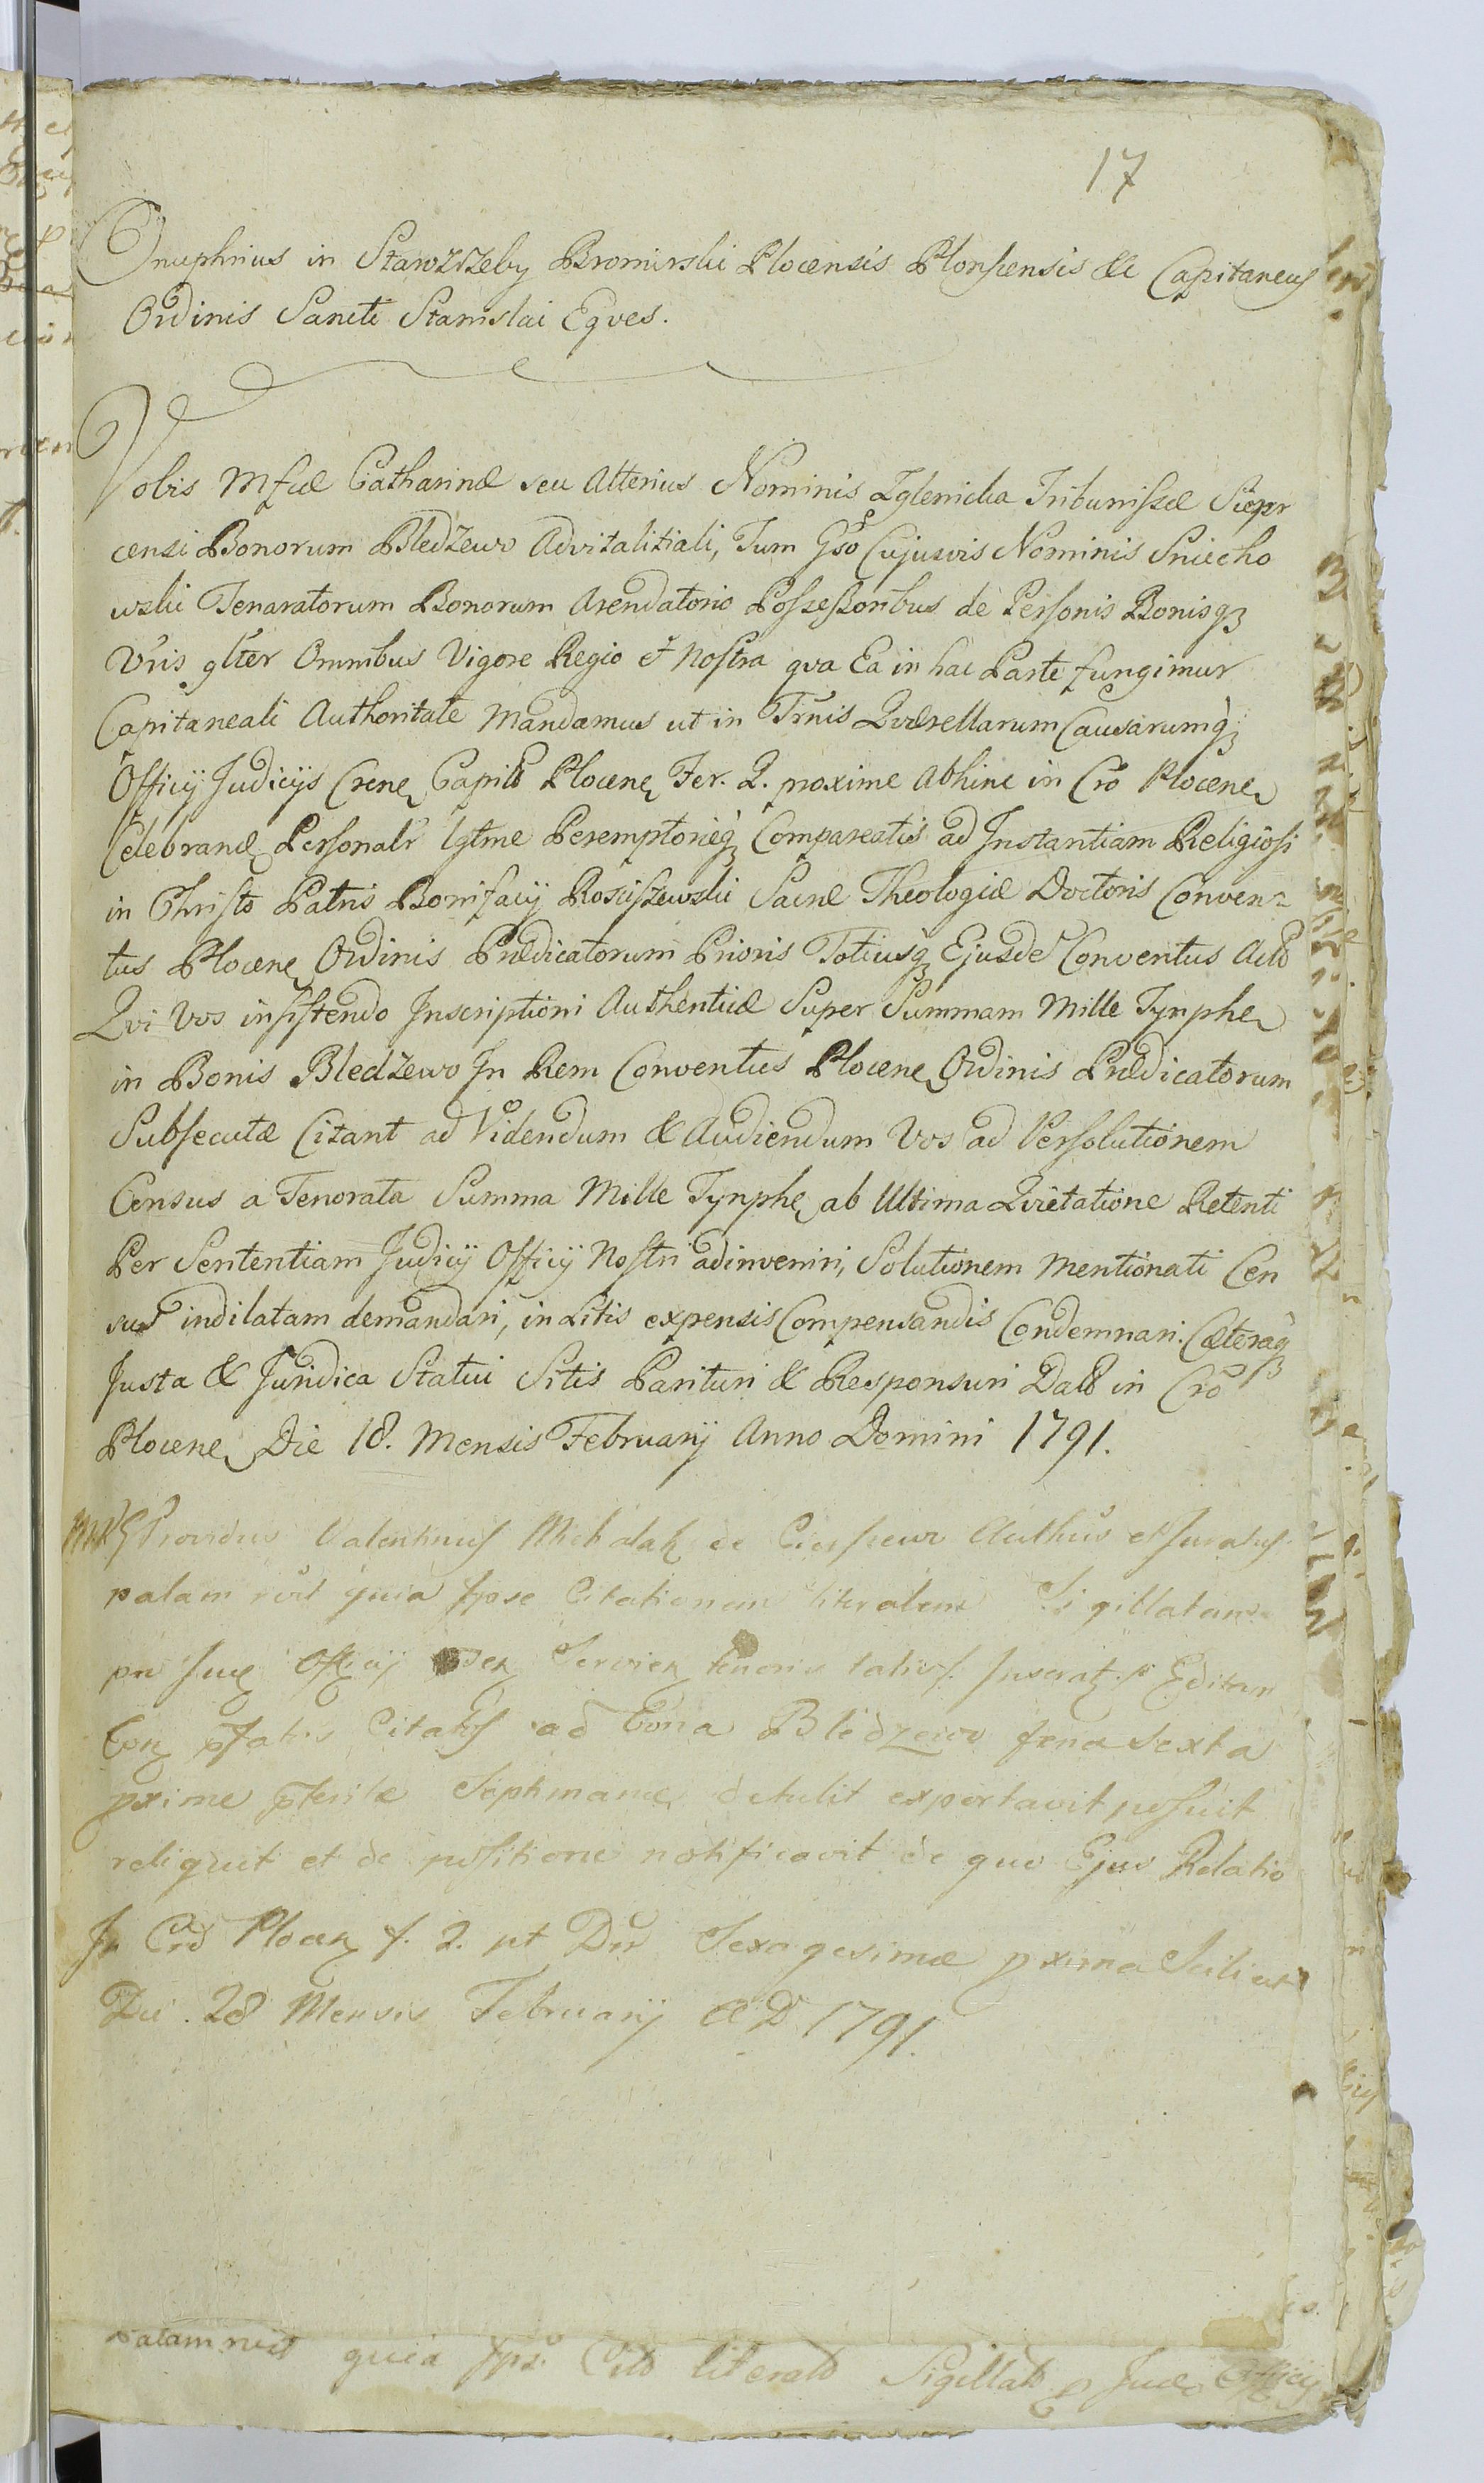 17
Onuphrius in Stawrzeby Bromirski Plocensis Plonscensis &c Capitaneus
Ordinis Sancti Stanislai Eqves.
Vobis Mfcæ Catharinæ seu Alterius Nominis Zglenicka Tribunissæ Siepr
censi Bonorum Bledzewo Advitalitiali, Tum Gso Cujusvis Nominis Sniecho
wski Tenaratorum Bonorum Arendatorio Possessoribus de Personis Bonisqz
Vris glter Omnibus Vigore Regio et Nostra qva Ea in hac Parte fungimur
Capitaneali Authoritate Mandamus ut in Trnis Qværellarum Causarumqz
Officij Judicijs Crens Capit Plocens Fer. 2. proxime Abhinc in Cro Plocens
Celebrand Personalr lgtme Peremptorieqz Compareatis ad Instantiam Religiosi
in Christo Patris Bonifacij Rosciszewski Sacræ Theologiæ Doctoris Conven=
tus Plocens Ordinis Prædicatorum Prioris Totiusqz Ejusde Conventus Act
Qvi Vos insistendo Inscriptioni Authenticæ Super Summam Mille Tynphe
in Bonis Bledzewo In Rem Conventus Plocens Ordinis Prædicatorum
Subsecutæ Citant ad Videndum & Audiendum Vos ad Persolutionem
Census a Tenorata Summa Mille Tynphe ab Ultima Qvietatione Retenti
Per Sententiam Judicij Officij Nostri adinveniri, Solutionem Mentionati Cen
sus indilatam demandari, in Litis expensis Compensandis Condemnari. Cæteraqz
Justa & Juridica Statui Sitis Parituri & Responsuri Dat in Cro
Plocens Die 18. Mensis February Anno Domini 1791.
Providus Valentinus Michalak de Authus et Juratus
palam rcit quia Ipse Citationem literalem Sigillatam
pr Officij tenoris talis Inserat Editam
Citatos ad Bona Bledzewo feria Sexta
pxime pterite Septimanæ detulit exportavit posuit
reliquit et de positione notificavit de quo Ejus Relatio
In Cro Plocens f. 2. pt Dn Sexagesimæ pxima Scilicet
Die 28 Mensis February AD 1791.
palam rcit quia Ips Cit literat Sigillat p Officij